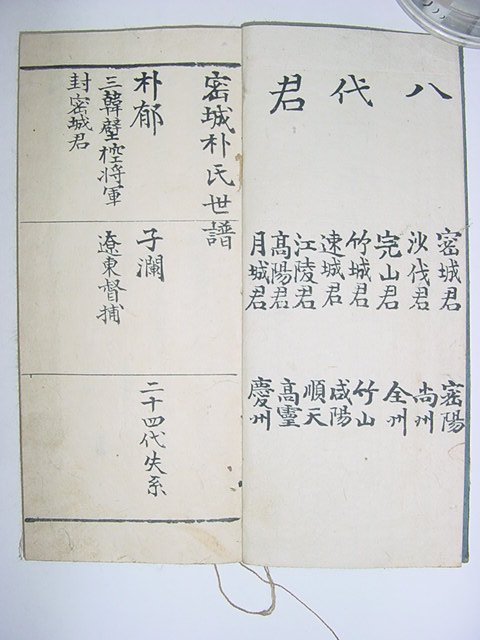 八代君
密城君
沙伐君
完山君
竹城君
速城君
江陵君
高陽君
月城君
密陽
尚州
全州
竹山
咸陽
順天
高靈
慶州
密城朴氏世譜
朴郁
三韓壁控將軍
封密城君
子瀾
遼東督捕
二十四代失系